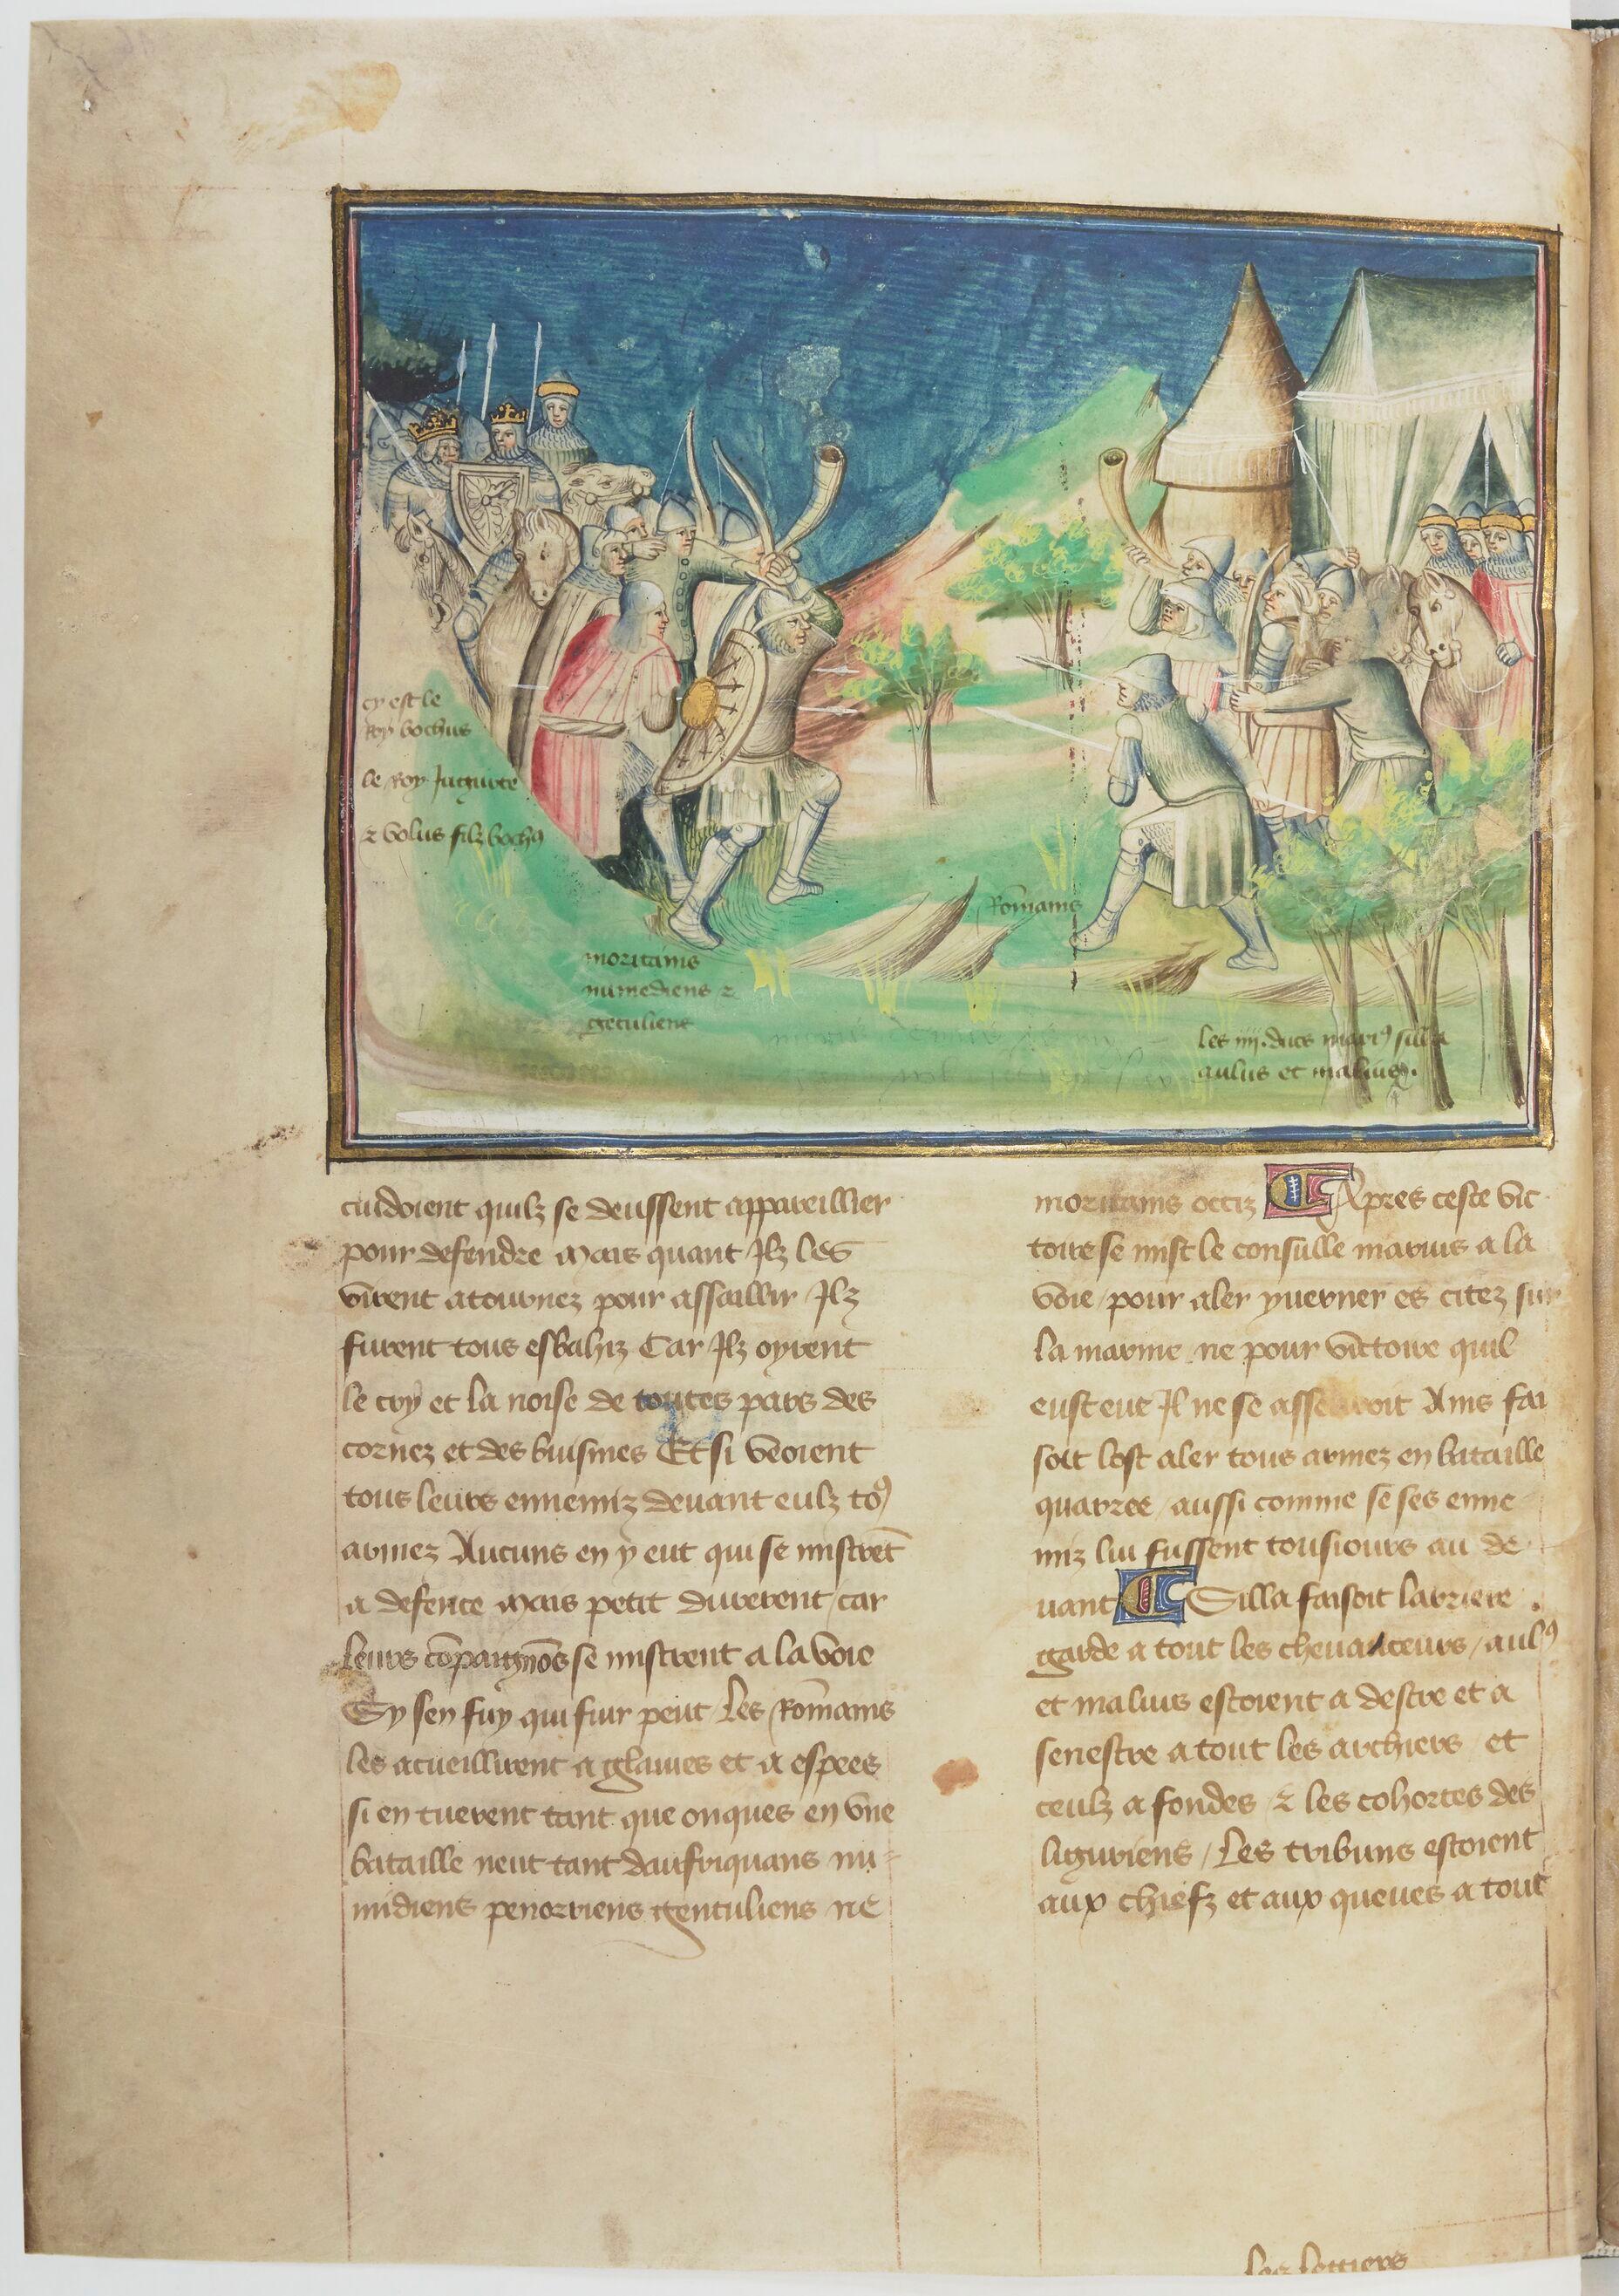 cy est le
roy bochus
le Roy Jugurte
z bolus filz bochꝰ
moritains
numediens z
getuliens
Rōmains
les iiii. ducs mariꝰ silla
aulus et malius.
cuidoient quilz se deussent appareillier
pour defendre Mais quant Jlz les
virent atournez pour assaillir Jlz
furent tous esbahiz Car Jlz oyrent
le cry et la noise de toutes pars des
cornez et des buisines Et si veoient
tous leurs ennemiz deuant eulz toꝰ
armez Aucuns en y eut qui se mistrēt
a defence Mais petit durerent / car
leurs cōpaignōs se mistrent a la voie
Sy sen fuy qui fuir peut Les Rōmains
les acueillirent a glaiues et a espees
si en tuerent tant que onques en vne
bataille neut tant daufriquans nu-
midiens penorriens gentuliens ne
moritains occiz Apres ceste vic
toire se mist le consulle marius a la
voie / pour aler yuerner es citez sur
la marine ne pour victoire quil
eust eut Jl ne se asseuroit Ains fai
soit lost aler tous armez en bataille
quarree / aussi comme se ses enne
miz lui fussent tousiours au de
uant Silla faisoit larriere
garde a tout les cheuauceurs / aulꝰ
et malius estoient a destre et a
senestre a tout les archiers et
ceulz a fondes z les cohortes des
liguriens / Les tribuns estoient
aux chiefz et aux queues a tout
les lettiers